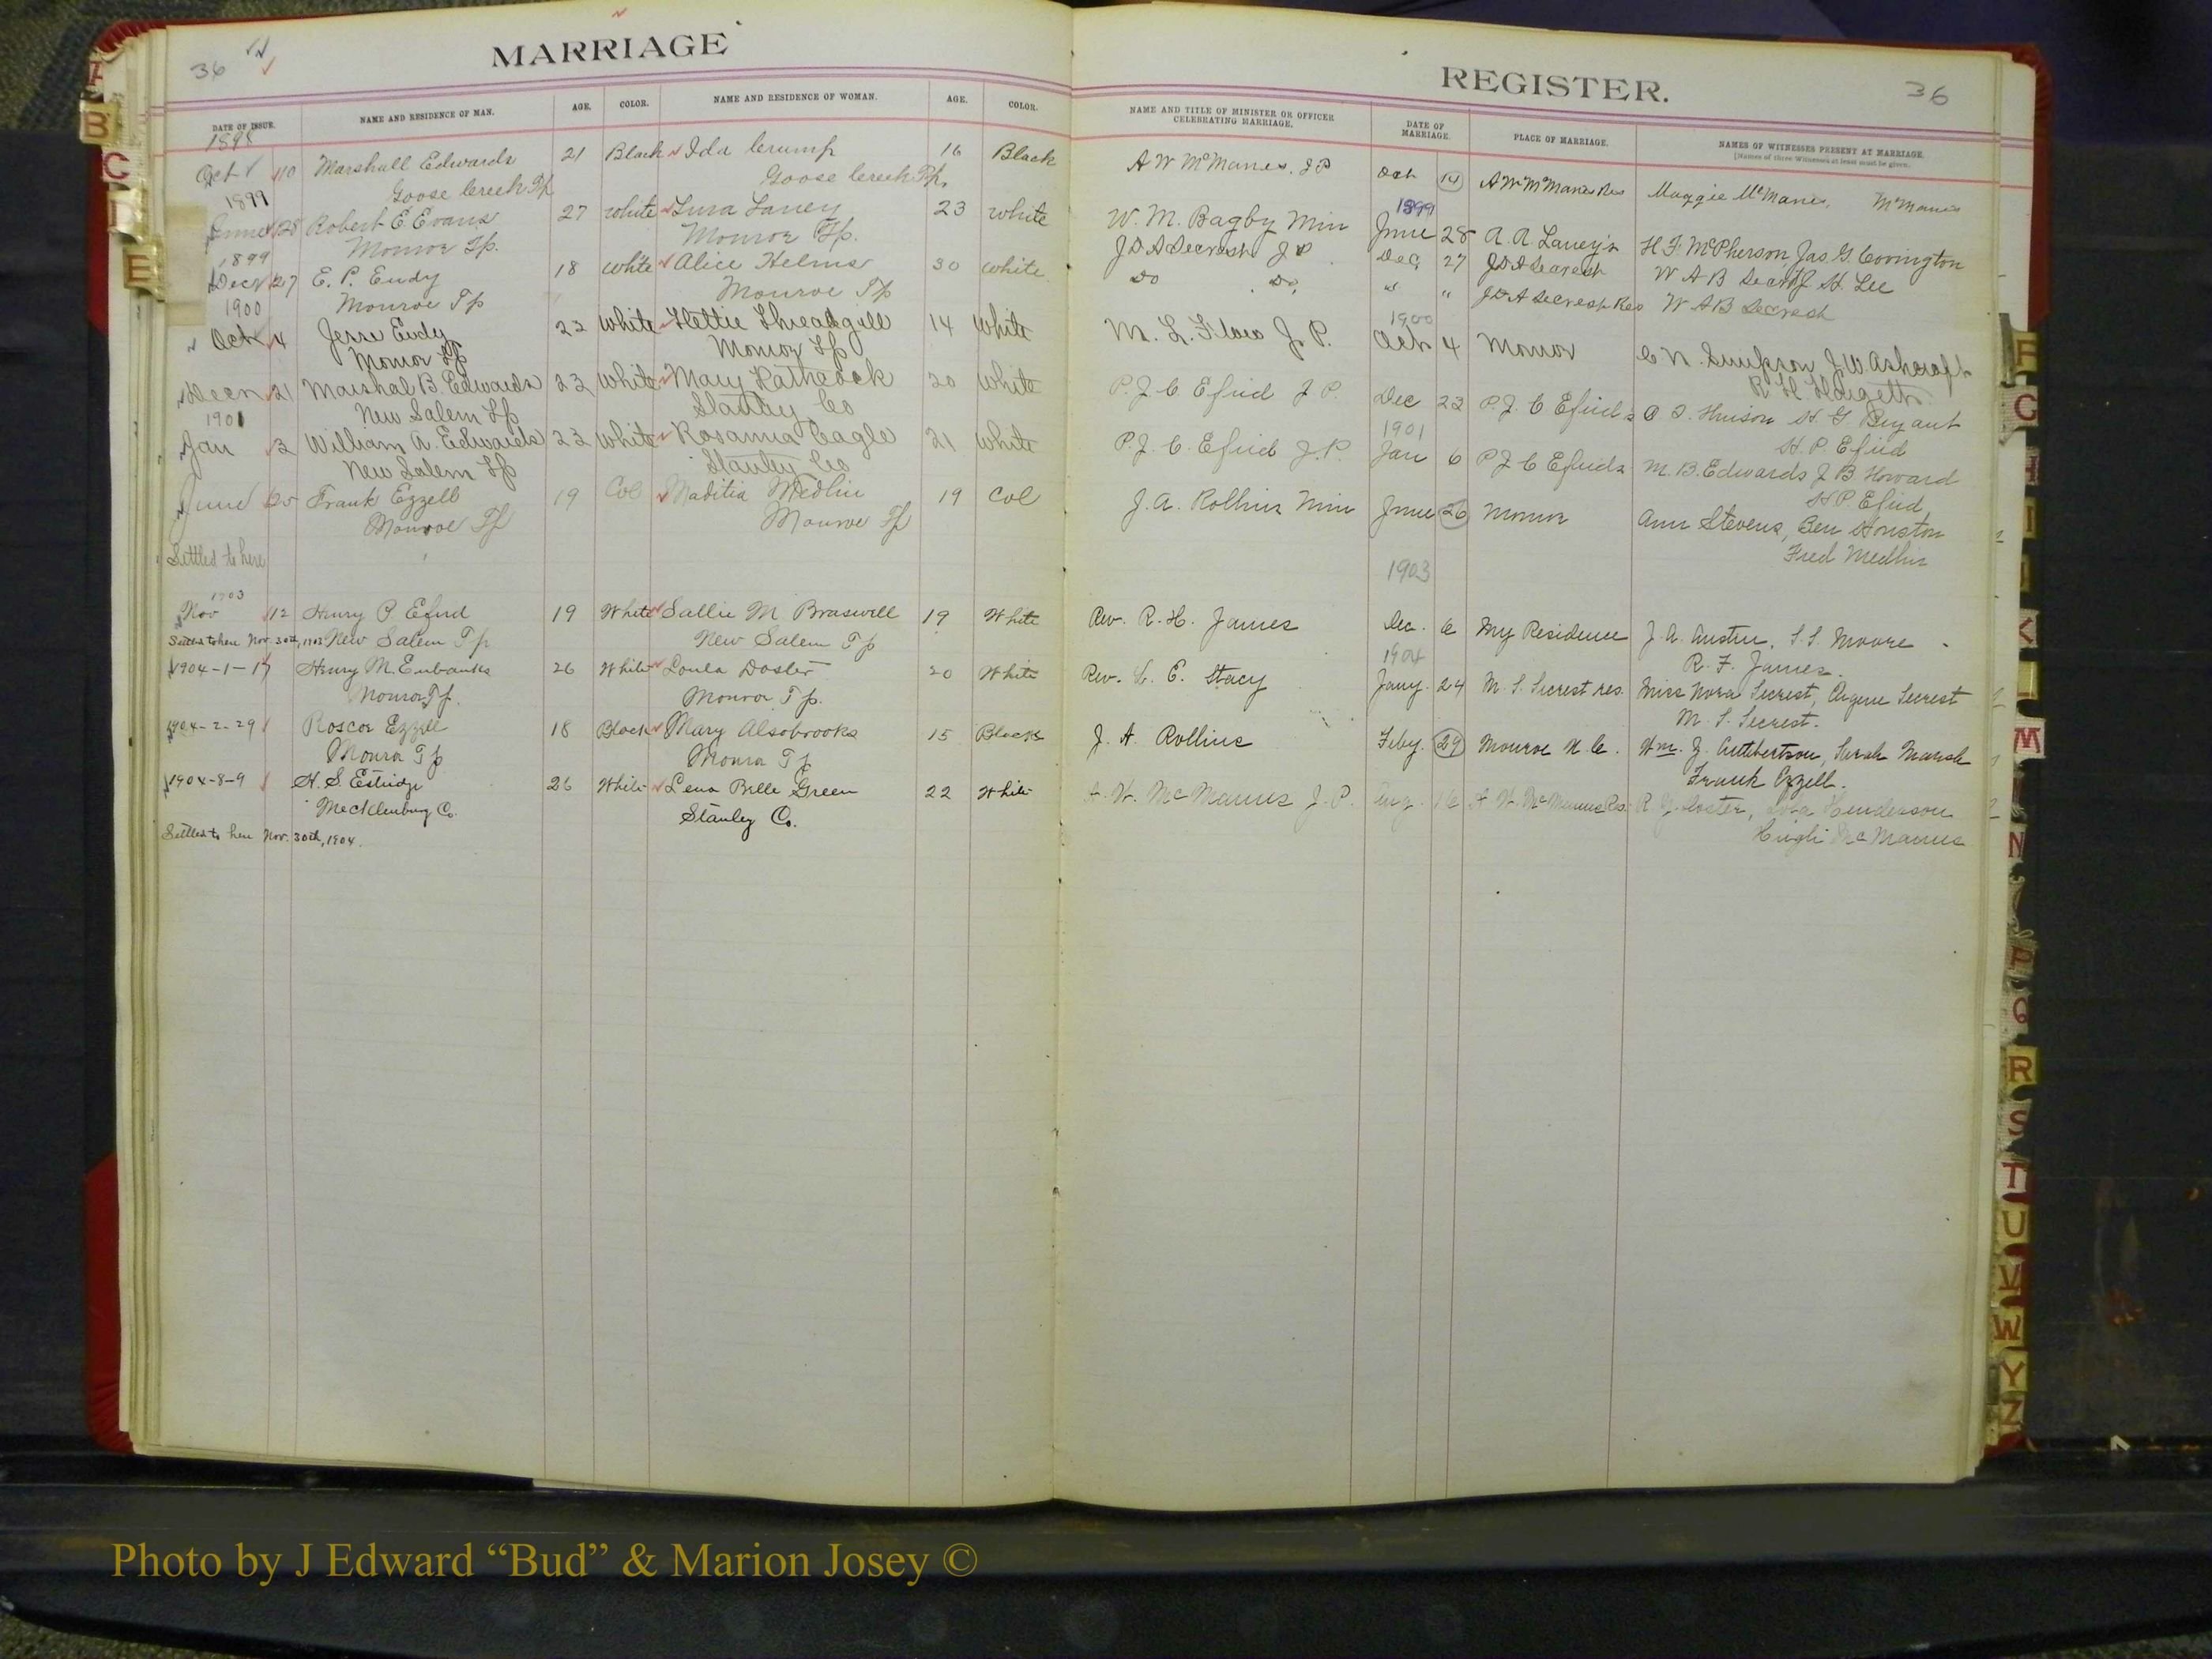 36
MARRIAGE
DATE OF ISSUE. NAME AND RESIDENCE OF MAN. AGE. COLOR. NAME AND RESIDENCE OF WOMAN. AGE. COLOR.
1898
Oct 10 Marshall Edwards 21 Black Ida Crump 16 Black
Goose Creek Tp Goose Creek Tp.
1899
June 28 Robert E Evans 27 white Lura Laney 23 white
Monroe Tp. Monroe Tp.
1899
Dec 27 E. P. Eudy 18 white Alice Helms 30 white
Monroe Tp Monroe Tp
1900
Oct 4 Jesse Eudy 22 White Hettie Threadgill 14 White
Monroe Tp Monroe Tp
Decn 21 Marshal B. Edwards 22 White Mary Hathcock 20 White
New Salem Tp Stanly Co
1901
Jan 3 William A. Edwards 22 White Rosanna Eagle 21 White
New Salem Tp Stanly Co
June 25 Frank Ezzell 19 Col Medlin 19 Col
Monroe Tp Monroe Tp
Settled to here
1903
Nov 12 Henry P. Efird 19 White Sallie M Braswell 19 White
Settled to here Nov. 30th, 1903 New Salem Tp New Salem Tp
1904-1-1 Henry M. Eubanks 26 White Loula Doster 20 White
Monroe Tp. Monroe Tp.
1904-2-29 Roscoe Ezzell 18 Black Mary Alsobrooks 15 Black
Monroe Tp Monroe Tp
1904-8-9 H. S. Estridge 26 White Lena Belle Green 22 White
Mecklenburg Co. Stanley Co.
Settled to here Nov. 30th, 1904.
REGISTER.
36
NAME AND TITLE OF MINISTER OR OFFICER CELEBRATING MARRIAGE. DATE OF MARRIAGE. PLACE OF MARRIAGE. NAMES OF WITNESSES PRESENT AT MARRIAGE.
[Names of three Witnesses at least must be given.
A W McManus, J P Oct 14 A W McManus Res Maggie McManus, McManus
1899
W. M. Bagby Min June 28 A. A. Laney's H. F. McPherson Jas G. Covington
J D A Secrest J P Dec 27 J D A Secrest W A B Secrest J H. Lee
Do Do " " J D A Secrest Res W A B Secrest
1900
M. L. Flow J. P. Oct 4 Monroe C N. Simpson J. W. Ashcraft
R H Hargett
P. J. C Efird J P. Dec 23 P. J. C Efirds H G Bryant
H. P. Efird
1901
P. J. C. Efird J. P. Jan 6 P J C Efirds M. B. Edwards J B. Howard
H P Efird
J. A. Rollins Min June 26 Monroe Ann Stevens, Ben Houston
Fred Medlin
1903
Rev. R. H. James Dec. 6 My Residence J. A. Austin, S. S. Moore
R. F. James.
1904
Rev. L. E. Stacy Jany. 24 M. S. Secrest res. Miss Nora Secrest, Eugene Secrest
M. S. Secrest.
J. A. Rollins Feby. 29 Monroe N. C. Wm. J. Cuthbertson, Sarah Marsh
Frank Ezzell.
A. W. McManus J. P. Aug. 16 A. W. McManus Res. R. J. Doster, Henderson
Hugh McManus
B
C
D
E
F
G
H
I
J
K
L
M
N
P
Q
R
S
T
U
V
W
Y
Z
Photo by J Edward “Bud” & Marion Josey ©